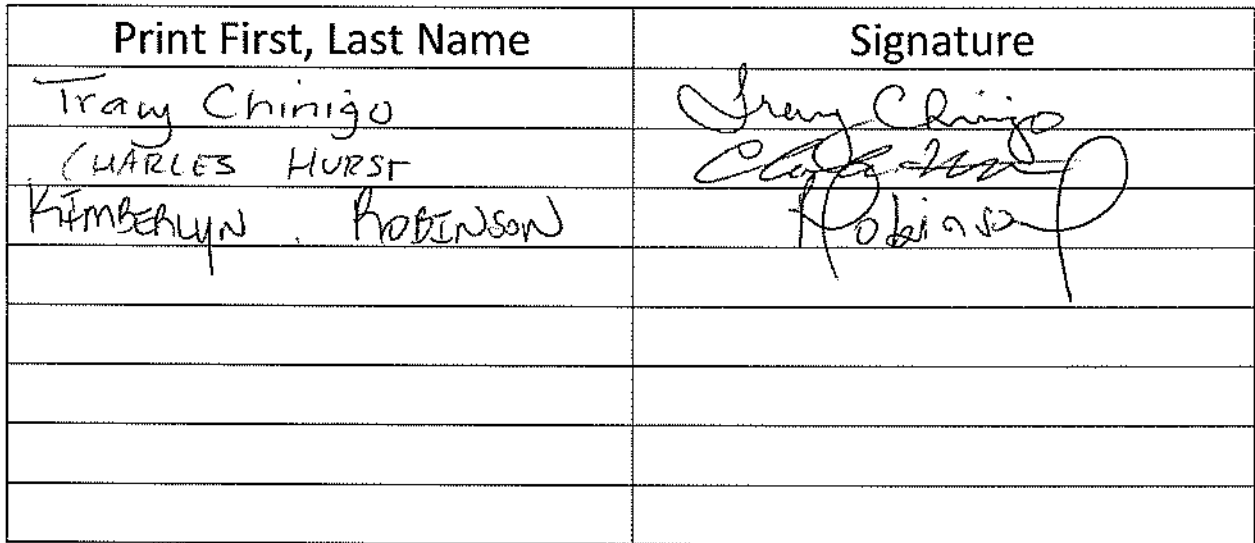 Print First, Last Name Signature
Tracy Chinigo Tracy Chinigo
CHARLES HURST Charles Hurst
KIMBERLYN ROBINSON Robinson